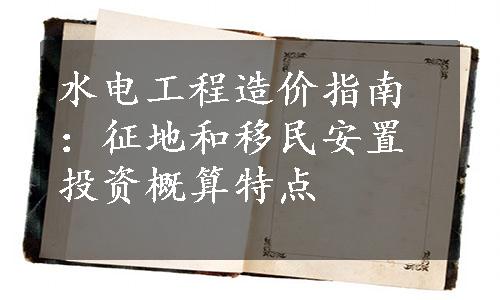 水电工程造价指南
：征地和移民安置
投资概算特点